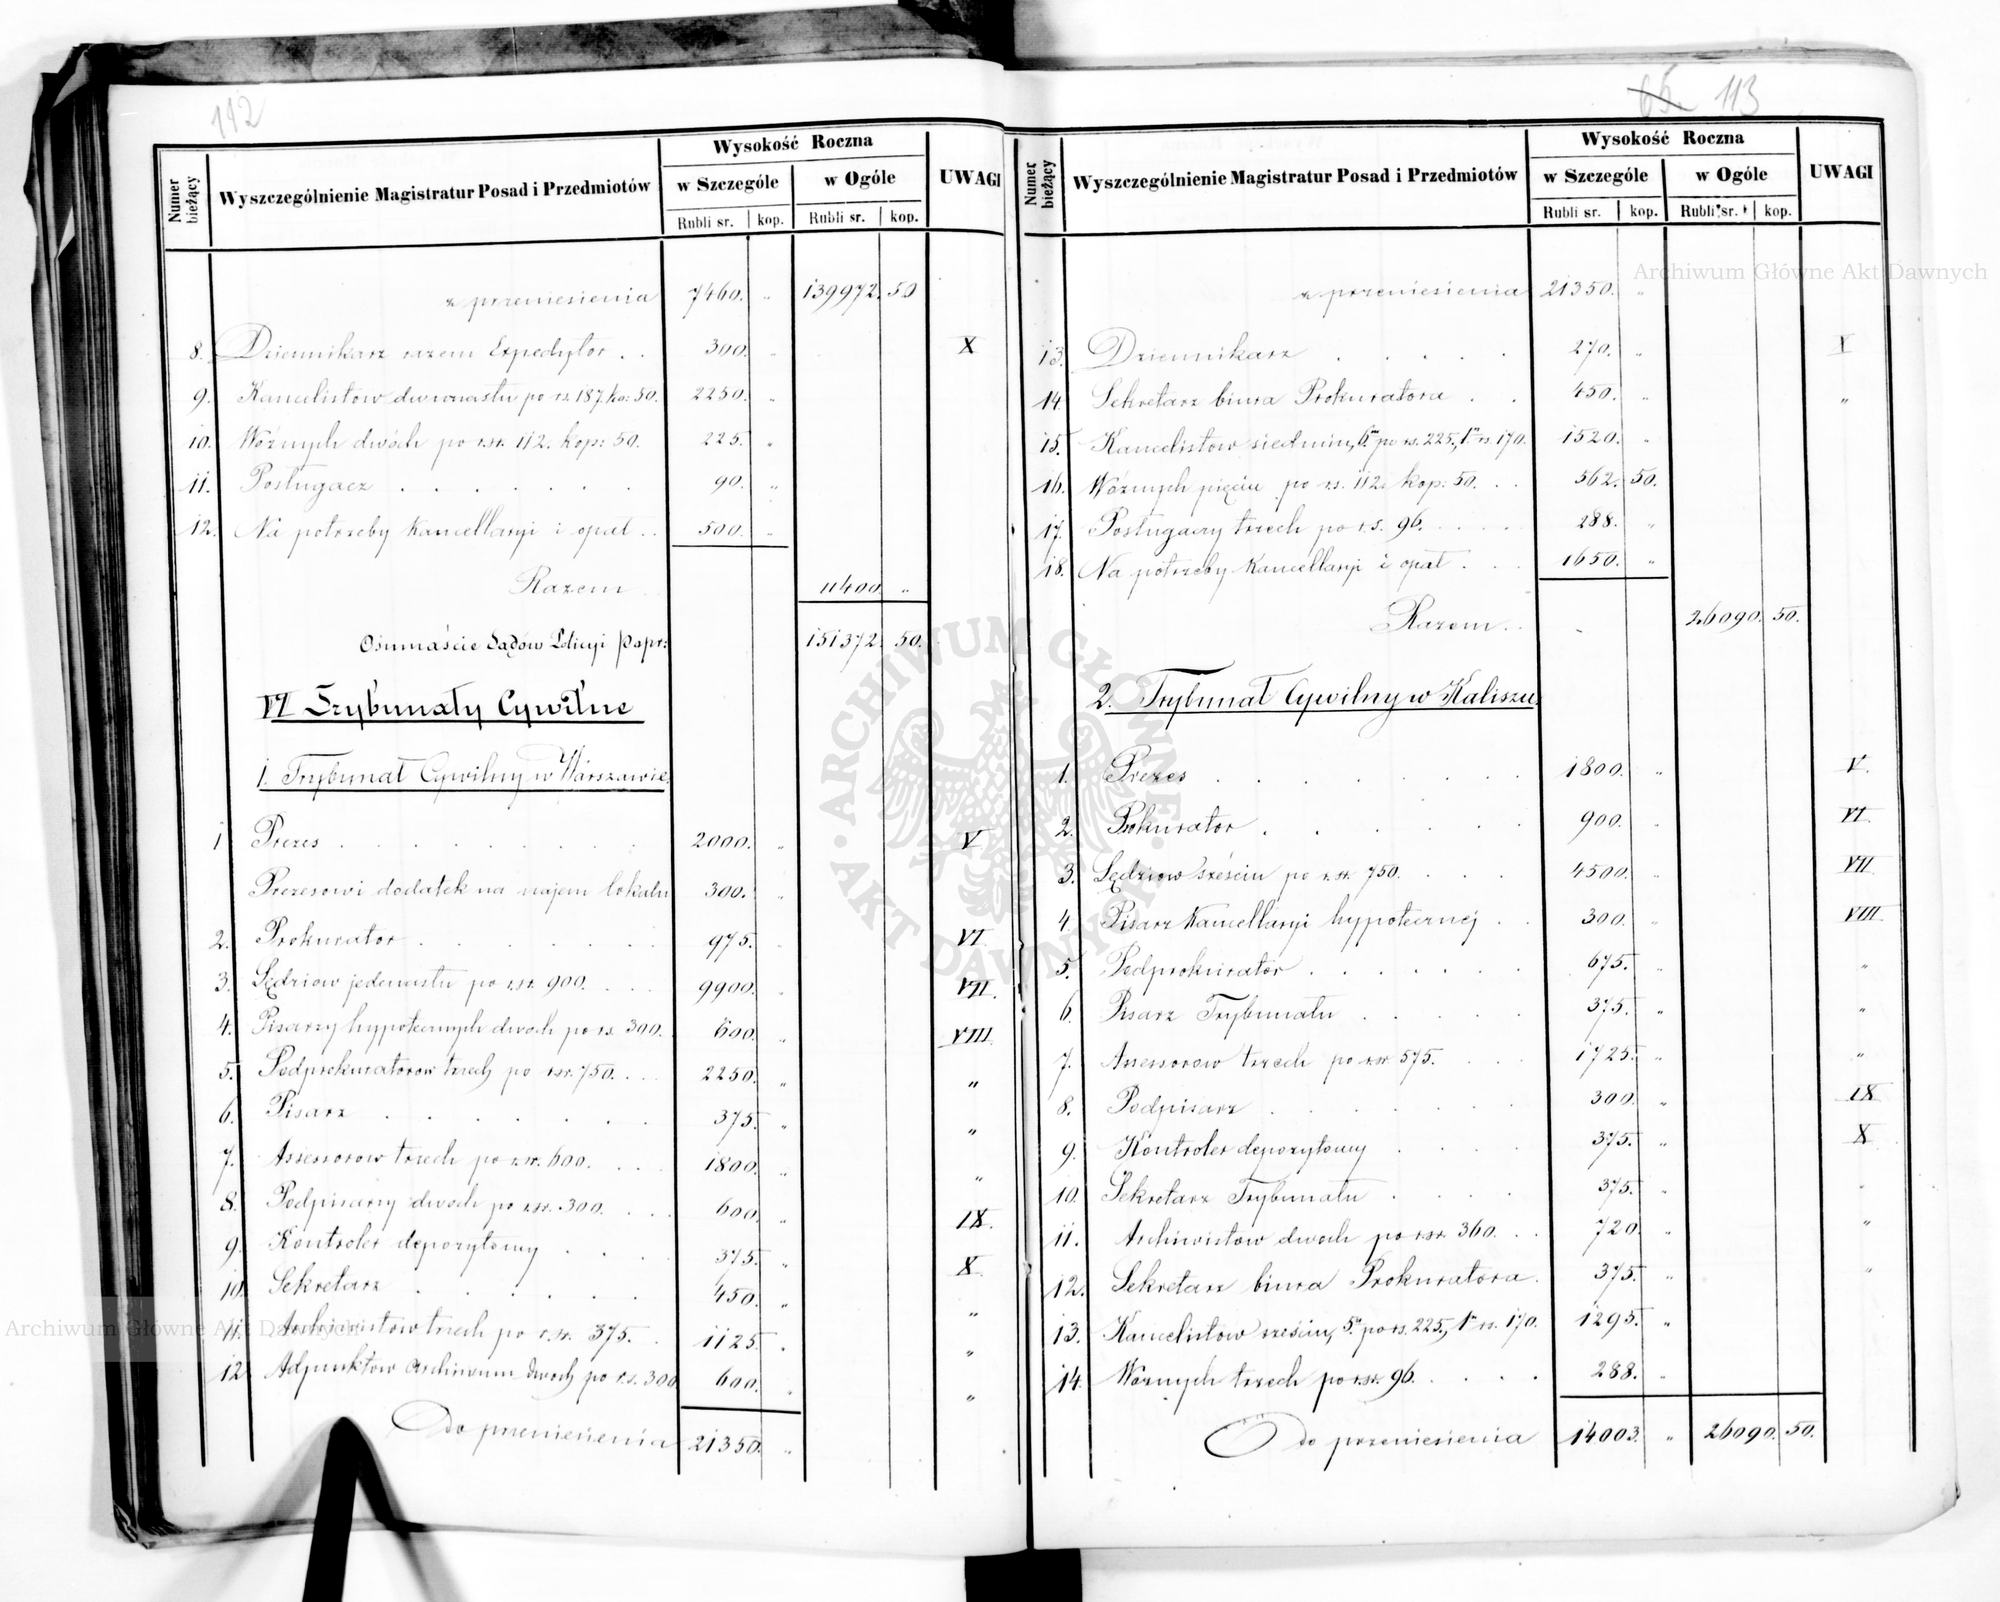 112
Numer bieżący | Wyszczególnienie Magistratur Posad i Przedmiotów | Wysokość Roczna | UWAGI
w Szczególe | w Ogóle
Rubli sr. | kop. | Rubli sr. | kop.
z przeniesienia 7460. „ 139972. 50
8. Dziennikarz razem Expedytor . . 300. „ X
9. Kancelistów dwunastu po rs. 187. ko: 50. 2250. „
10. Woźnych dwóch po r.sr. 112. kop: 50. 225. „
11. Posługacz . . . . . . 90. „
12. Na potrzeby Kancellaryi i opał . . 500. „
Razem 11400. „
Ośmnaście Sądów Policyi Popr: 151372. 50.
VI Trybunały Cywilne
1. Trybunał Cywilny w Warszawie.
1 Prezes . . . . . . . . 2000. „ V
Prezesowi dodatek na najem lokalu 300. „
2. Prokurator . . . . . . 975. „ VI
3. Sędziow jedenastu po r.sr. 900. . . . 9900. „ VII.
4. Pisarzy hypotecznych dwoch po r.s. 300. 600. „ VIII.
5. Podprokuratorow trzech po r.sr. 750. . . . 2250. „ „
6. Pisarz . . . . . . . 375. „ „
7. Assessorow trzech po r.sr. 600. . . . 1800. „ „
8. Podpisarzy dwoch po r.sr. 300. . . . 600. „ IX.
9. Kontroler depozytowy . . . . 375. „ X.
10. Sekretarz . . . . . . 450. „ „
11. Archiwistow trzech po r.sr. 375. . 1125. „ „
12. Adjunktow Archiwum dwoch po r.s. 300 600. „ „
Do przeniesienia 21350. „
65. 113
Numer bieżący | Wyszczególnienie Magistratur Posad i Przedmiotów | Wysokość Roczna | UWAGI
w Szczególe | w Ogóle
Rubli sr. | kop. | Rubli sr. | kop.
Archiwum Główne Akt Dawnych
z przeniesienia 21350. „
13. Dziennikarz . . . . . 270. „ X
14. Sekretarz biura Prokuratora . . 450. „ „
15. Kancelistow siedmiu, 6ᵘ po rs. 225, 1ⁿ rs. 170. 1520. „
16. Woźnych pięciu po r.s. 112. kop: 50. . . 562. 50.
17. Posługaczy trzech po r.s. 96. . . . . 288. „
18. Na potrzeby Kancellaryi i opał . . . 1650. „
Razem . . 26090. 50.
2. Trybunał Cywilny w Kaliszu.
1. Prezes . . . . . . . . 1800. „ V.
2. Prokurator . . . . . . 900. „ VI.
3. Sędziow sześciu po r.sr. 750. . . . 4500. „ VII.
4. Pisarz Kancellaryi hypotecznej . . 300. „ VIII.
5. Podprokurator . . . . . . 675. „ „
6. Pisarz Trybunału . . . . . 375. „ „
7. Assessorow trzech po r.sr. 575. . . . 1725. „ „
8. Podpisarz . . . . . . . 300. „ IX
9. Kontroler depozytowy . . . . 375. „ X
10. Sekretarz Trybunału . . . . 375. „ „
11. Archiwistow dwoch po r.sr. 360. . . 720. „ „
12. Sekretarz biura Prokuratora . 375. „ „
13. Kancelistow sześciu, 5ᵘ po rs. 225, 1ⁿ rs. 170. 1295. „
14. Woźnych trzech po r.sr. 96. . . . . 288. „
Do przeniesienia 14003. „ 26090. 50.
ARCHIWUM GŁÓWNE AKT DAWNYCH
Archiwum Główne Akt Dawnych